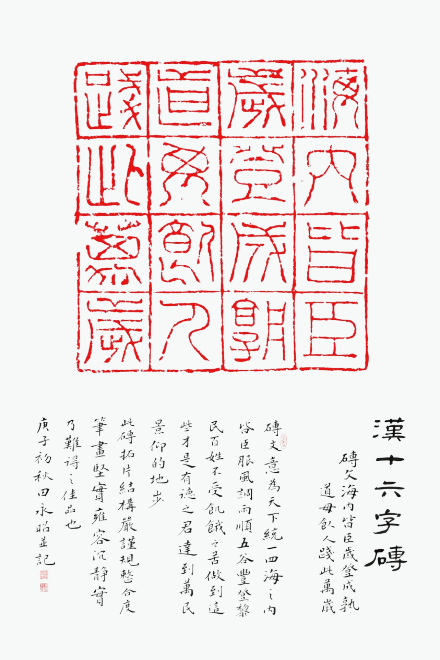 海内皆臣
歲登成孰
道毋飢人
踐此萬歲
漢十六字磚
磚文海内皆臣歲登成孰
道毋飢人踐此萬歲
磚文意為天下統一四海之内
皆臣服風調雨順五谷豐登黎
民百姓不受飢餓之苦做到這
些才是有德之君達到萬民
景仰的地步
此磚拓片結構嚴謹規整合度
筆畫堅實雍容沉静實
乃難得之佳品也
庚子初秋田永昭並記